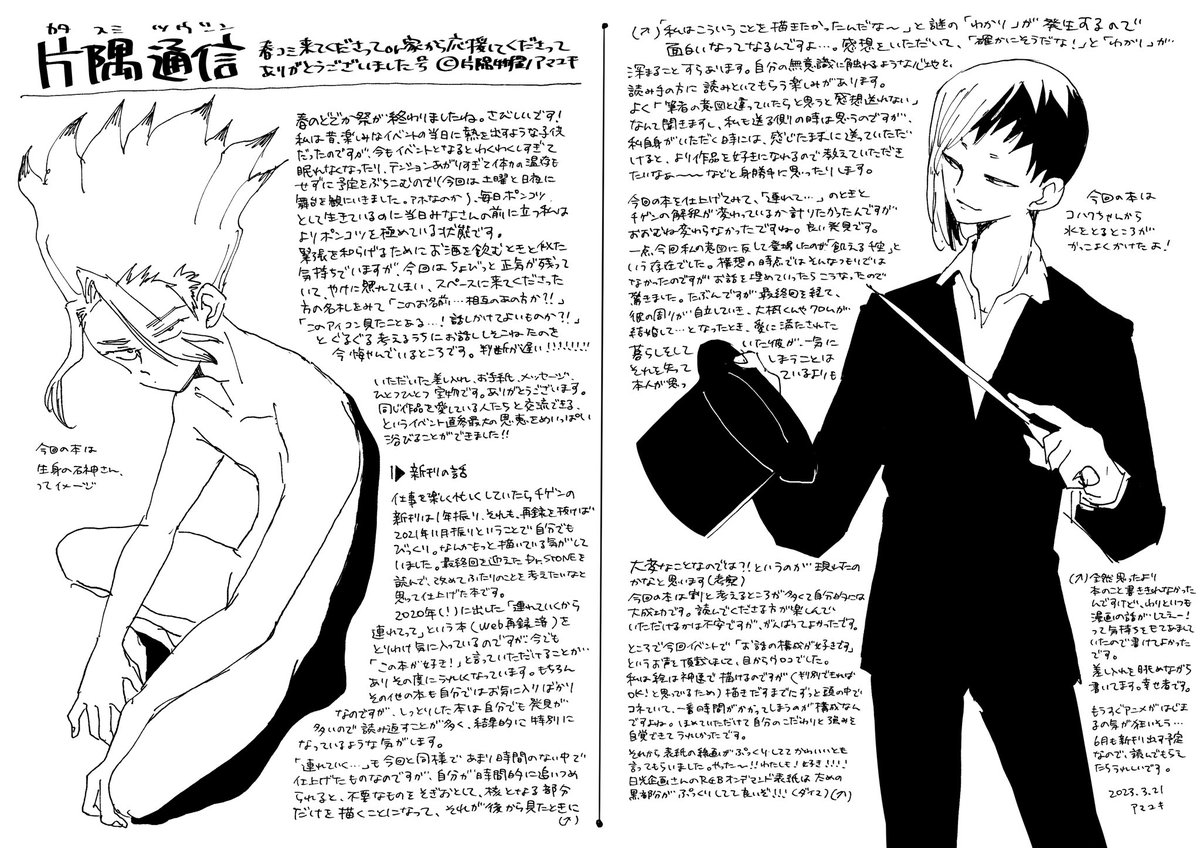 カタ スミ ツウシン
片隅通信
春コミ来てくださってor家から応援してくださって
ありがとうございました号 ©片隅物産/アマユキ
春のどでか祭が終わりましたね。さびしいです!
私は昔、楽しみなイベントの当日に熱を出すような子供
だったのですが、今もイベントとなるとわくわくしすぎて
眠れなくなったり、テンションあがりすぎて体力の温存も
せずに予定をぶちこむので(今回は土曜と日夜に
舞台を観にいきました。アホなのか)、毎日ポンコツ
として生きているのに当日みなさんの前に立つ私は
よりポンコツを極めている状態です。
緊張を和らげるためにお酒を飲むときと似た
気持ちでいますが、今回はちょびっと正気が残って
いて、やけに照れてしまい、スペースに来てくださった
方の名札をみて「このお名前…相互のあの方か?!」
「このアイコン見たことある…!話しかけてよいものか?!」
とぐるぐる考えるうちにお話ししそこねたのを
今悔やんでいるところです。判断が遅い!!!!!!!!
いただいた差し入れ、お手紙、メッセージ、
ひとつひとつ宝物です。ありがとうございます。
同じ作品を愛している人たちと交流できる、
というイベント直参最大の恩恵をめいっぱい
浴びることができました!!
今回の本は
生身の石神さん、
ってイメージ
新刊の話
仕事を楽しく忙しくしていたらチゲンの
新刊は1年振り、それも、再録を抜けば
2021年11月振りということで自分でも
びっくり。なんかもっと描いている気がして
いました。最終回を迎えたDr.STONEを
読んで、改めてふたりのことを考えたいなと
思って仕上げた本です。
2020年(!)に出した「連れていくから
連れてって」という本(Web再録済)を
とりわけ気に入っているのですが今でも
「この本が好き!」と言っていただけることが…
ありその度にうれしくなっています。もちろん
その他の本も自分ではお気に入りばかり
なのですが、しっとりした本は自分でも発見が
多いので読み返すことが多く、結果的に特別に
なっているような気がします。
「連れていく…」も今回と同様であまり時間のない中で
仕上げたものなのですが、自分が時間的に追いつめ
られると、不要なものをそぎおとして、核となる部分
だけを描くことになって、それが後から見たときに
(↗)
(↗)「私はこういうことを描きたかったんだな〜」と謎の「わかり」が発生するので
面白いなってなるんですよ…。感想をいただいて、「確かにそうだな!」と「わかり」が…
深まることすらあります。自分の無意識に触れるような心地と、
読み手の方に読みといてもらう楽しみがあります。
よく「筆者の意図と違っていたらと思うと感想送れない」
なんて聞きますし、私も送る側の時は思うのですが、
私自身がいただく時には、感じたままに送っていただ
けると、より作品を好きになれるので教えていただき
たいなぁ〜〜などと身勝手に思ったりします。
今回の本を仕上げてみて、「連れて…」のときと
チゲンの解釈が変わっているか計りたかったんですが
おおむね変わらなかったですね。良い発見です。
一点、今回私の意図に反して登場したのが「飢える千空」と
いう存在でした。構想の時点ではそんなつもりでは
なかったのですがお話を埋めていったらこうなったので
驚きました。たぶんですが最終回を経て、
彼の周りが自立していき、大樹くんやクロムが
結婚して…となったとき、愛に満たされた
暮らしをして いた彼が一気に
それを失って しまうことは
本人が思っ ているよりも
今回の本は
コハクちゃんから
水をとるところが
かっこよくかけたよ!
大変なことなのでは?!というのが現れたの
かなと思います(考察)
今回の本は割と考えるところが多くて自分的には
大成功です。読んでくださる方が楽しんで
いただけるかは不安ですが、がんばってよかったです。
ところで今回イベントで「お話の構成が好きです」
というお声を頂戴しまして、目からウロコでした。
私は絵は神速で描けるのですが(判別できれば
OK!と思っているため)描きだすまでにずっと頭の中で
コネていて、一番時間がかかってしまうのが構成なん
ですよね。ほめていただけて自分のこだわりと強みを
自覚できてうれしかったです。
それから表紙の線画がぷっくりしててかわいいとも
言ってもらいました。やった〜!!わたしも!好き!!!!
日光企画さんのRGBオンデマンド表紙は太めの
黒部分がぷっくりしてて良いぞ!!!(ダイマ)(↗)
(↗)全然思ったより
本のこと書ききれなかった
んですけど、わりといつも
漫画の話がしてえー!
って気持ちをもてあまして
いたので書けてよかった
です。
差し入れを眺めながら
書いてます。幸せ者です。
もうすぐアニメがはじま
るの気が狂いそう…
6月も新刊出す予定
なので、読んでもらえ
たらうれしいです。
2023.3.21
アマユキ